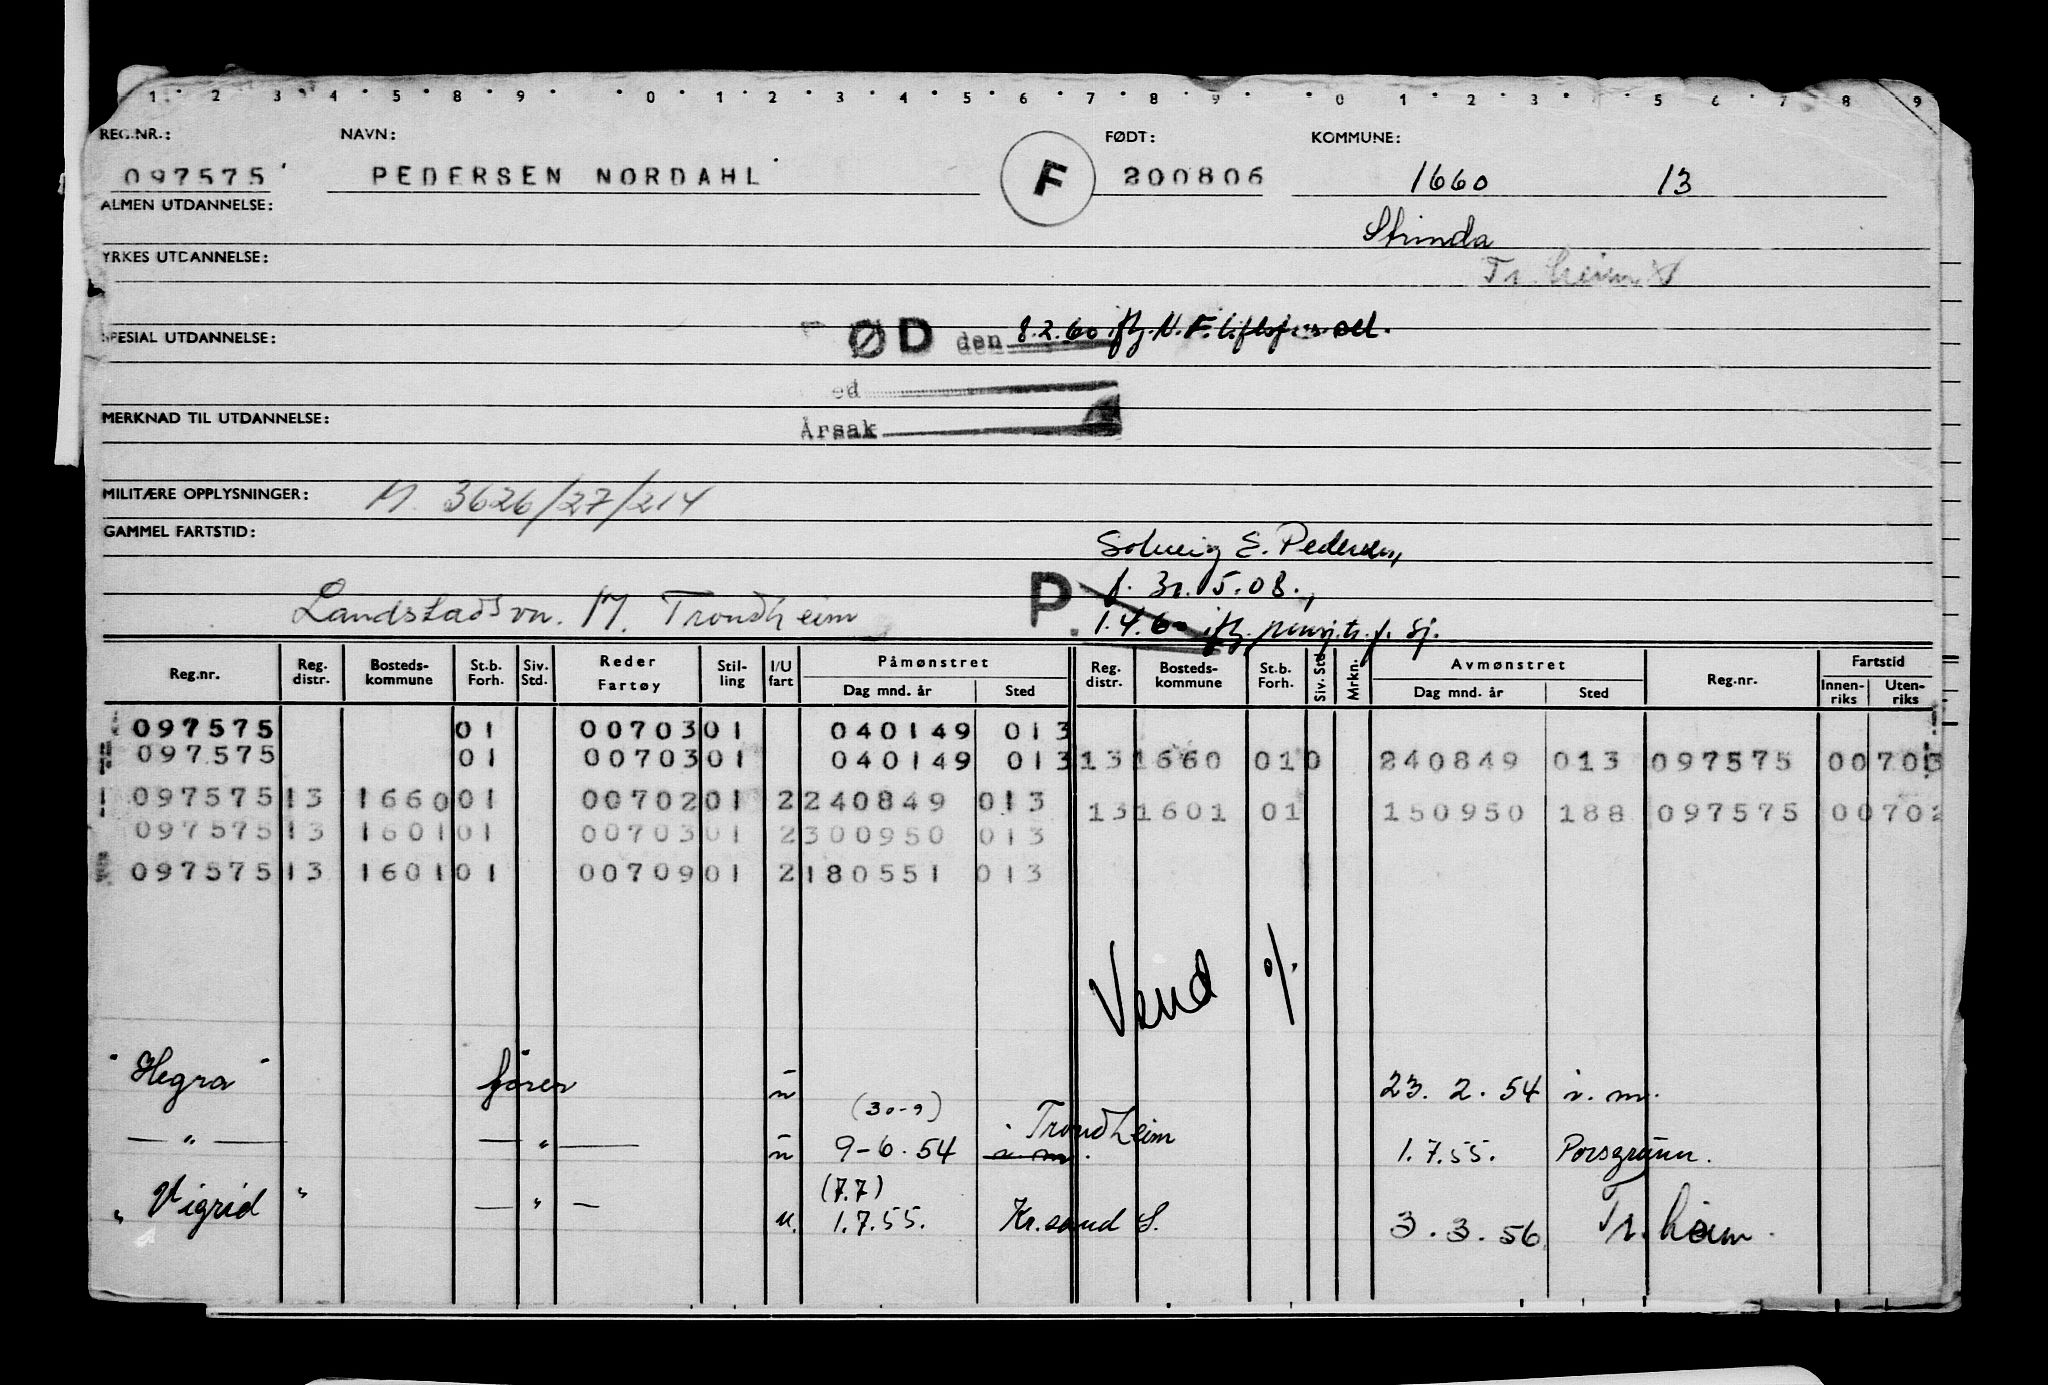 1 2 3 4 5 8 9 0 1 2 3 4 5 6 7 8 9 0 1 2 3 5 6 7 8 9
REG.NR.: NAVN: FØDT: KOMMUNE:
097575 PEDERSEN NORDAHL F 200806 1660 13
ALMEN UTDANNELSE:
Strinda
YRKES UTDANNELSE:
Tr.heim
SPESIAL UTDANNELSE: ØD den 8.2.60 iflg. N.F.
ed
MERKNAD TIL UTDANNELSE:
Årsak
MILITÆRE OPPLYSNINGER: M. 3626/27/214
GAMMEL FARTSTID:
Solveig E. Pedersen,
P f. 30.5.08.,
Landstadsvn. 17. Trondheim 1.4.60 iflg. pensj.tr. f. Sj.
Reg.nr. Reg. distr. Bosteds-kommune St.b. Forh. Siv. Std. Reder Fartøy Stil-ling I/U fart Påmønstret Dag mnd. år Sted Reg. distr. Bosteds-kommune St.b. Forh. Siv. Std Mrkn. Avmønstret Dag mnd. år Sted Reg.nr. Fartstid Innen-riks Uten-riks
097575 01 00703 01 040149 013
097575 01 00703 01 040149 013 13 1660 01 0 240849 013 097575 00703
097575 13 1660 01 00702 01 2 240849 013 13 1601 01 150950 188 097575 00702
097575 13 1601 01 00703 01 2 300950 013
097575 13 1601 01 00709 01 2 180551 013
Vend %
"Hegra" fører u 23. 2. 54 i. m.
(30-9)
— " — — " — u 9-6.54 i. m. Trondheim 1.7.55. Porsgrunn.
(7.7)
"Vigrid" — " — u. 1.7.55. Kr.sand S. 3.3.56 Tr.heim.